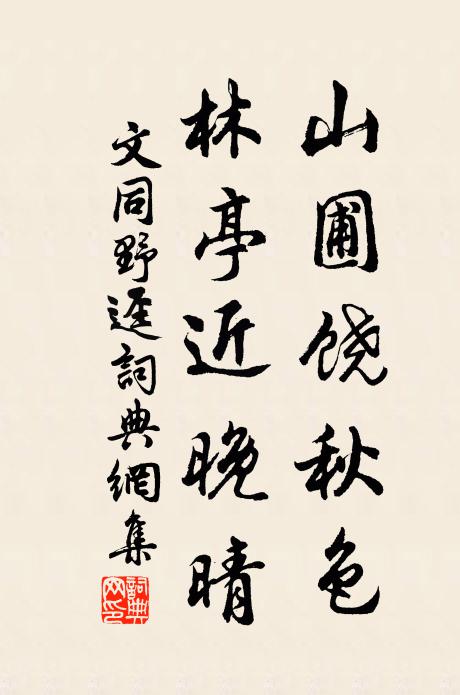 山圃饶秋色
林亭近晚晴
文同野迳詞典網集
詞典網印